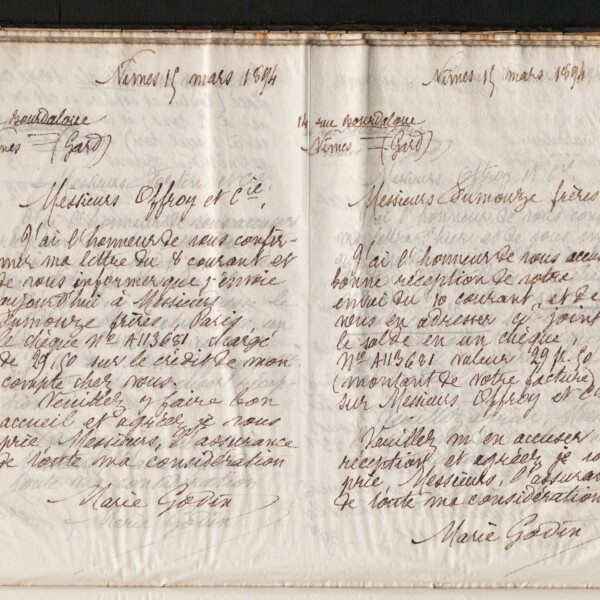 Nîmes 15 mars 1894
Bourdaloue
(Gard)
Messieurs Offroy et Cie,
J'ai l'honneur de vous confir-
mer ma lettre du 8 courant et
de vous informer que j'envoie
aujourd'hui à Messieurs
Dumouze frères, Paris,
le chèque No A113681 chargé
de 29,50 sur le crédit de mon
compte chez vous.
Veuillez y faire bon
accueil et agréer, je vous
prie Messieurs, l'assurance
de toute ma considération
Marie Godin
Nîmes 15 mars 1894
14 rue Bourdaloue
Nîmes (Gard)
Messieurs Dumouze frères
J'ai l'honneur de vous accu
bonne réception de votre
envoi du 10 courant, et de
vous en adresser ci-joint
le solde en un chèque,
No A113681 valeur 29 f. 50
(montant de votre facture)
sur Messieurs Offroy et Cie
Veuillez m'en accuser
réception, et agréer je vo
prie, Messieurs, l'assuran
de toute ma considération
Marie Godin